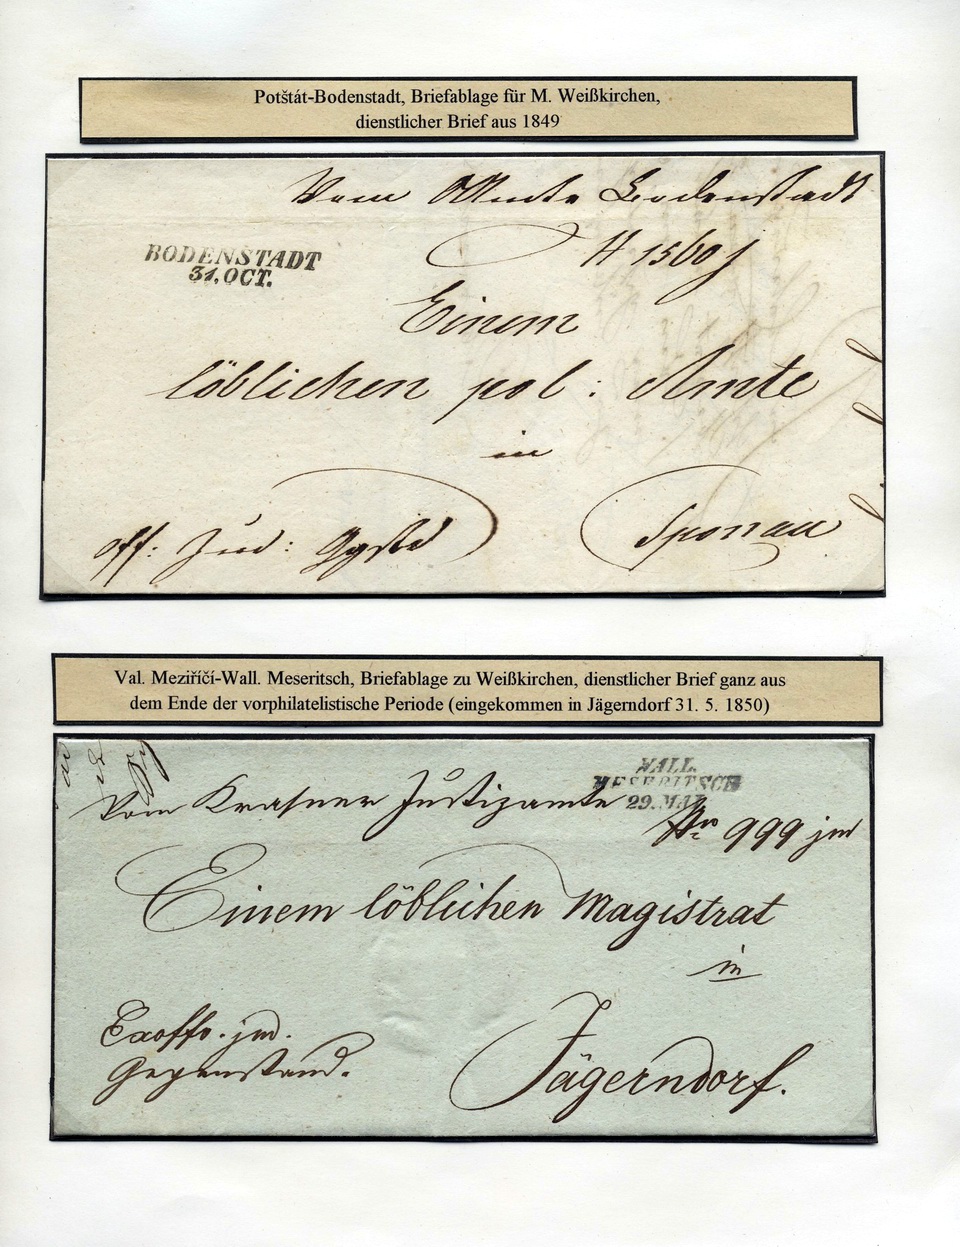 Potštát-Bodenstadt, Briefablage für M. Weißkirchen,
dienstlicher Brief aus 1849
Vom Amte Bodenstadt
BODENSTADT
31. OCT.
N 1560 j
Einem
löblichen pol: Amte
in
off: Jud: Ggstd
Sponau
Val. Meziříčí-Wall. Meseritsch, Briefablage zu Weißkirchen, dienstlicher Brief ganz aus
dem Ende der vorphilatelistische Periode (eingekommen in Jägerndorf 31. 5. 1850)
WALL.
MESERITSCH
29. MAI
Vom Krasner Justizamte
Nro 999 jud
Einem löblichen Magistrat
in
Exoffo. jud.
Gegenstand.
Jägerndorf.